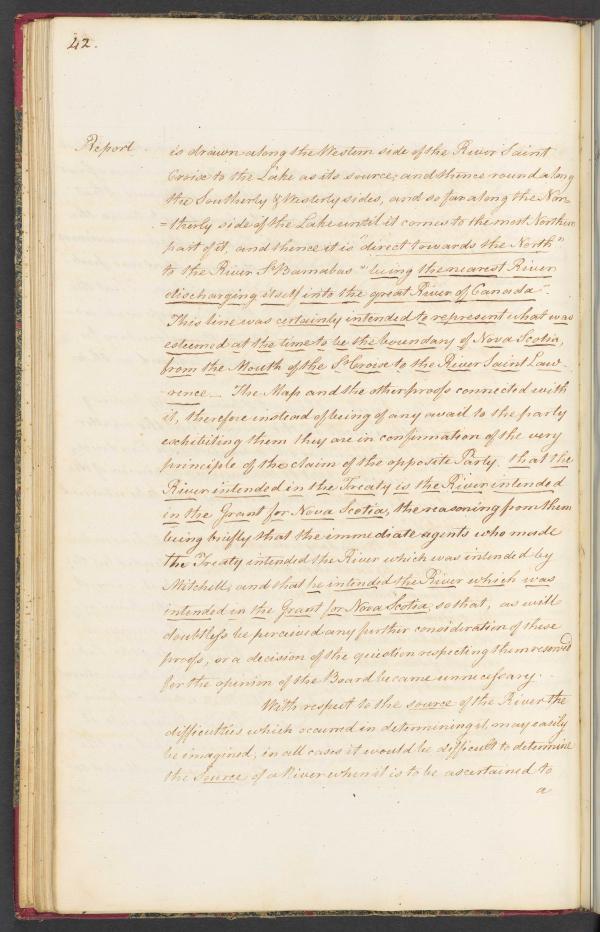 42.
Report
is drawn along the Western side of the River Saint
Croix to the Lake as its source; and thence round along
the Southerly & Westerly sides, and so far along the Nor=
=therly side of the Lake until it comes to the most Northern
part of it, and thence it is "direct towards the North"
to the River St Barnabas "being the nearest River
discharging itself into the great River of Canada".
This line was certainly intended to represent what was
esteemed at the time to be the boundary of Nova Scotia,
from the Mouth of the St Croix to the River Saint Law-
rence _ The Map and the other proofs connected with
it, therefore instead of being of any avail to the party
exhibiting them they are in confirmation of the very
principle of the claim of the opposite Party. that the
River intended in the Treaty is the River intended
in the Grant for Nova Scotia, the reasoning from them
being briefly that the immediate agents who made
the Treaty intended the River which was intended by
Mitchell, and that he intended the River which was
intended in the Grant for Nova Scotia, so that, as will
doubtless be perceived any further consideration of these
proofs, or a decision of the question respecting them reserved
for the opinion of the Board became unnecessary.
With respect to the source of the River the
difficulties which occurred in determining it, may easily
be imagined, in all cases it would be difficult to determine
the Source of a River when it is to be ascertained to
a